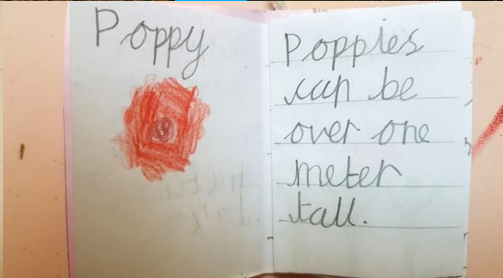 Poppy
Poppies
can be
over one
meter
tall.